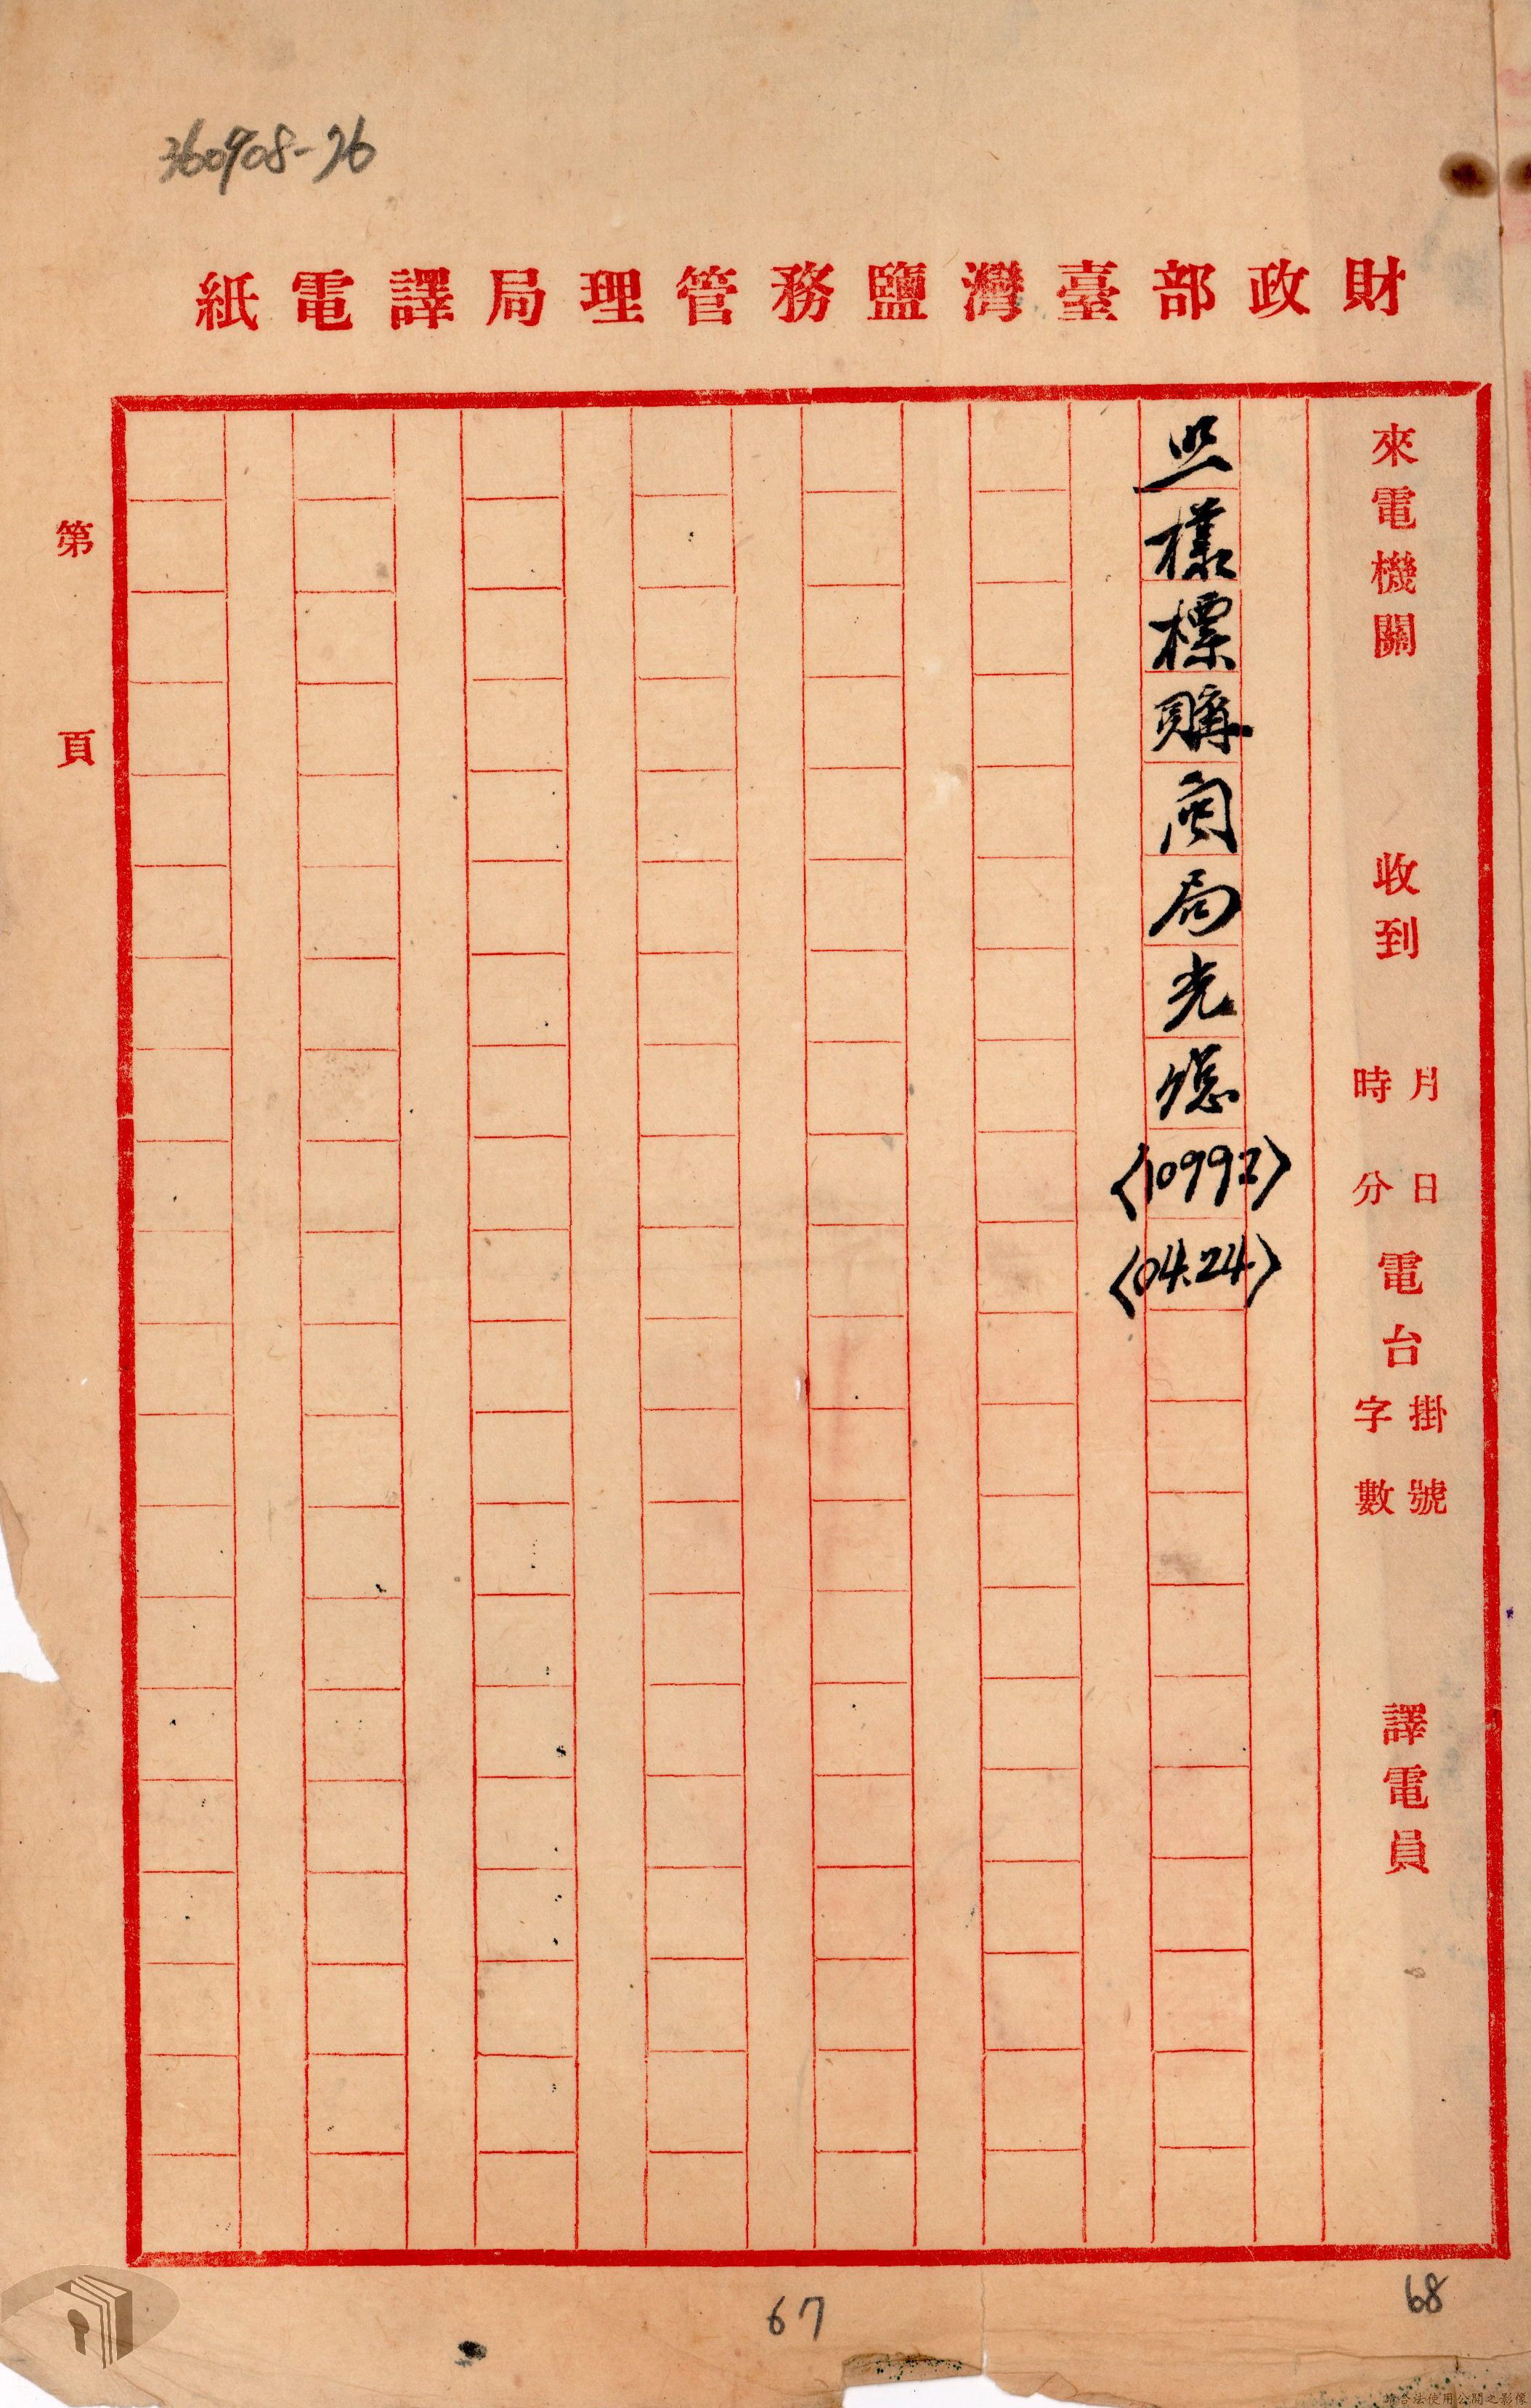 360908-26
財政部臺灣鹽務管理局譯電紙
來電機關 收到 月日時分 電台掛號字數 譯電員
照樣標購閩局光
(10992)
(04.24)
第 頁
67
68
請合法使用公開之影像